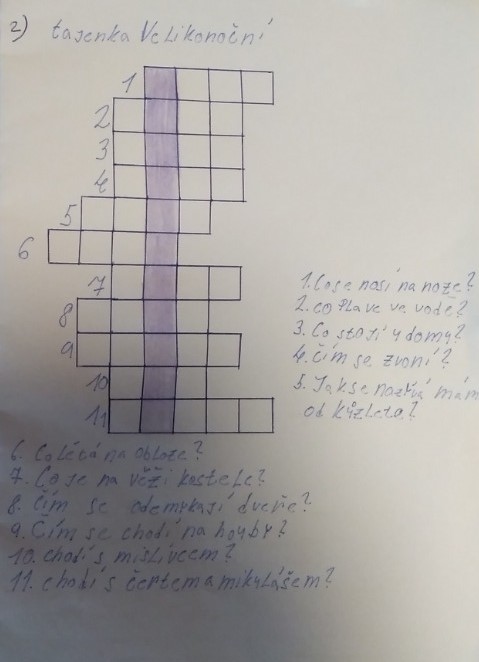 2) tajenka Velikonoční
1
2
3
4
5
6
7
8
9
10
11
1. Co se nosí na noze?
2. co Plave ve vodě?
3. Co stojí u domu?
4. Čím se zvoní?
5. Jak se nazívá mám
od kůzleta?
6. Co létá na obloze?
7. Co je na věži kostele?
8. Čím se odemykají dveře?
9. Čím se chodí na houby?
10. chodí s mislivcem?
11. chodí s čertem a mikulášem?